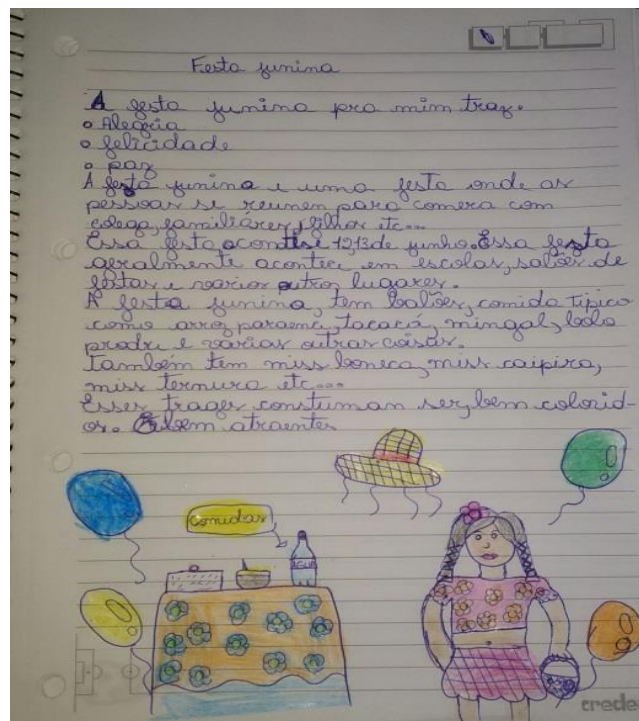 Festa junina
A festa junina pra mim traz.
• Alegria
• felicidade
• paz
A festa junina e uma festa onde as
pessoas se reunen para comera com
colega, familiáres, filhos etc...
Essa festa acontese 12,13 de junho. Essa festa
geralmente acontece em escolas, salões de
festas e varios outros lugares.
A festa junina, tem balões, comida tipica
como arroz paraenci, tacacá, mingal, bolo
prodre e varias outras coisas.
Também tem miss boneca, miss caipira,
miss ternura etc...
Esses trages constuman ser, bem colorid-
os. E bem atraentes
comidas
AGUA
crede